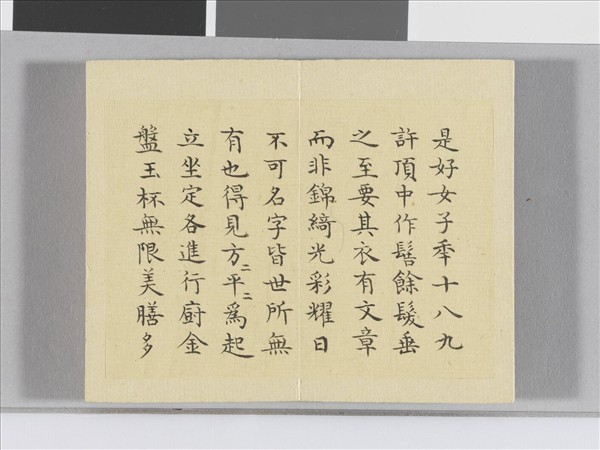 是好女子秊十八九
許頂中作髻餘髮垂
之至要其衣有文章
而非錦綺光彩耀日
不可名字皆世所無
有也得見方〻平〻爲起
立坐定各進行廚金
盤玉杯無限美膳多